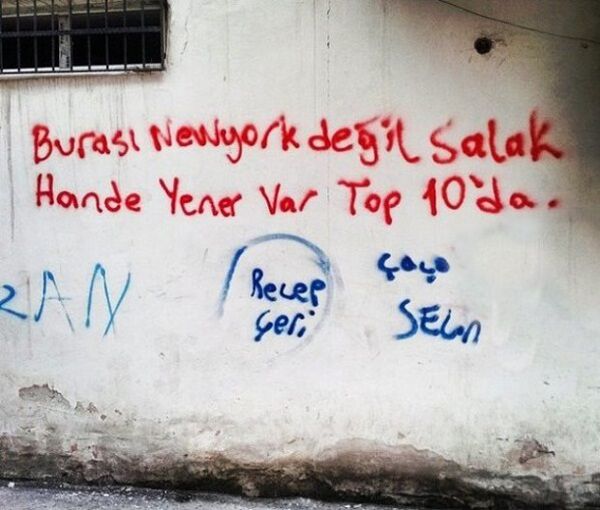 Burası Newyork değil Salak
Hande Yener Var Top 10'da.
ZAN
Recep
Geri
ÇoÇo
SELin